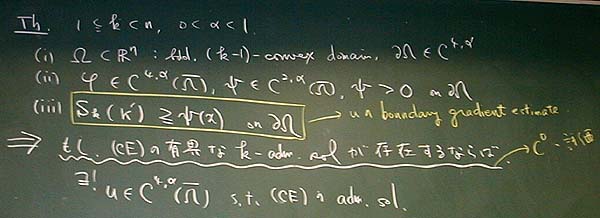 Th. 1 ≦ k < n, 0 < α < 1.
(i) Ω ⊂ ℝⁿ : bdd. (k-1)-convex domain, ∂Ω ∈ C^{4,α}
(ii) φ ∈ C^{4,α}(Ω̄), ψ ∈ C^{2,α}(Ω̄), ψ > 0 on ∂Ω
(iii) S_k(κ') ≧ ψ(x) on ∂Ω → u の boundary gradient estimate
⇒ もし (CE) の有界な k-adm. sol が存在するならば → C⁰-評価
∃! u ∈ C^{4,α}(Ω̄) s.t. (CE) の adm. sol.